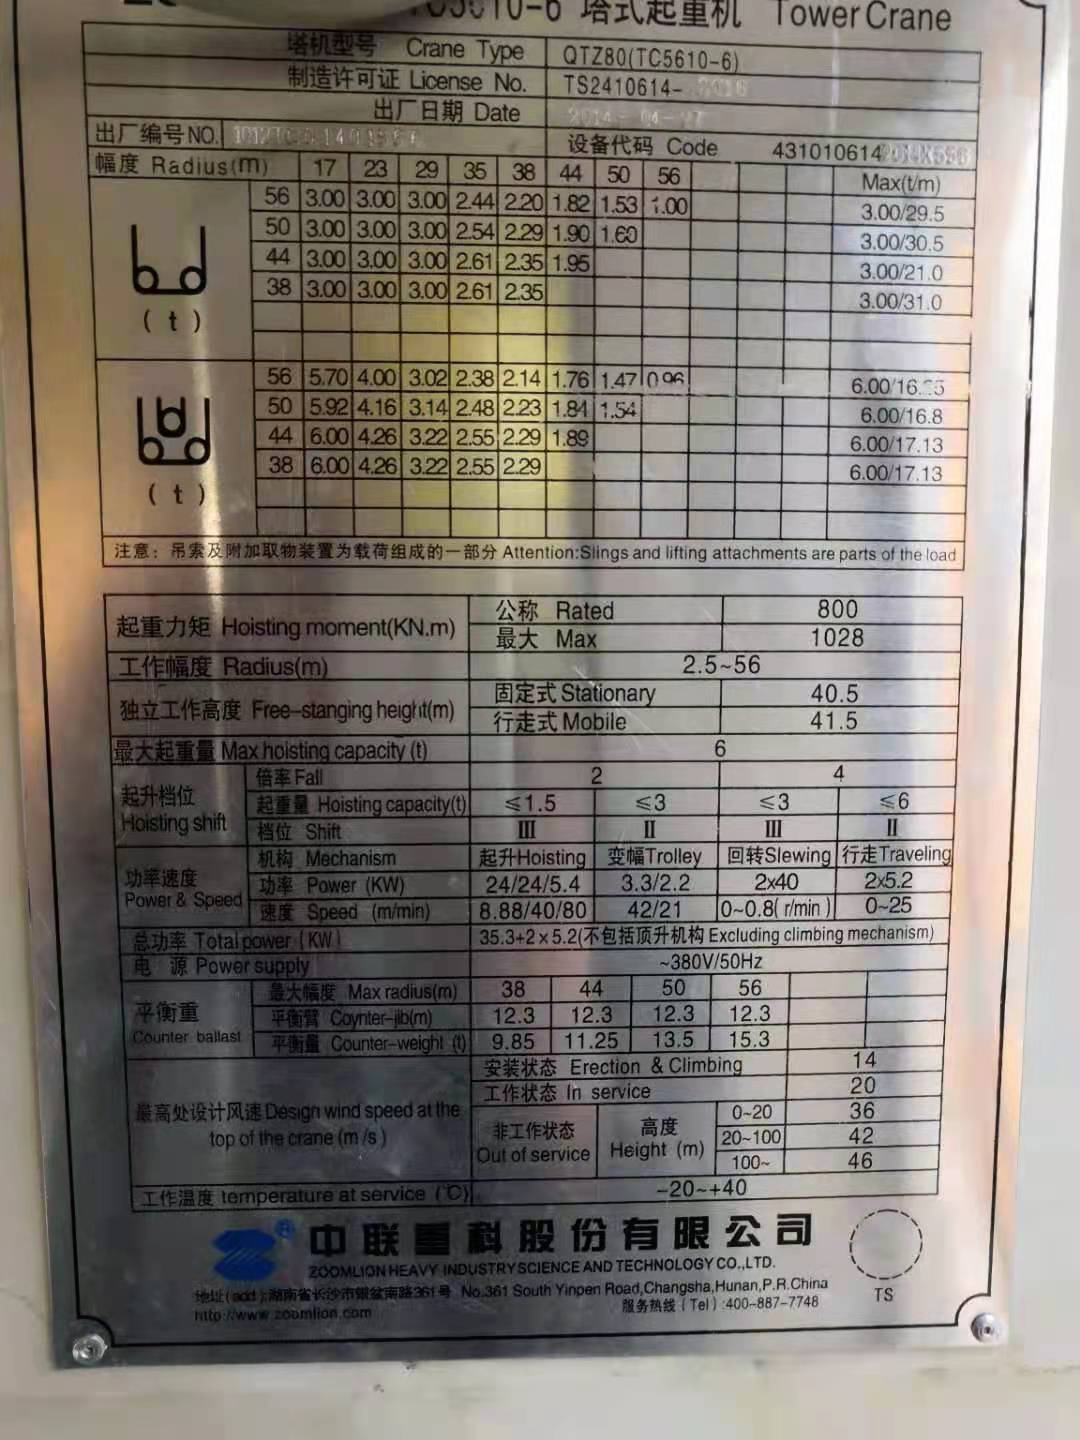 TC5610-6 塔式起重机 Tower Crane
塔机型号 Crane Type QTZ80(TC5610-6)
制造许可证 License No. TS2410614-
出厂日期 Date 2014-04-27
出厂编号NO. 设备代码 Code 431010614
幅度 Radius(m) 17 23 29 35 38 44 50 56 Max(t/m)
56 3.00 3.00 3.00 2.44 2.20 1.82 1.53 1.00 3.00/29.5
50 3.00 3.00 3.00 2.54 2.29 1.90 1.60 3.00/30.5
44 3.00 3.00 3.00 2.61 2.35 1.95 3.00/21.0
38 3.00 3.00 3.00 2.61 2.35 3.00/31.0
(t)
56 5.70 4.00 3.02 2.38 2.14 1.76 1.47 0.96
50 5.92 4.16 3.14 2.48 2.23 1.84 1.54 6.00/16.8
44 6.00 4.26 3.22 2.55 2.29 1.89 6.00/17.13
38 6.00 4.26 3.22 2.55 2.29 6.00/17.13
(t)
注意：吊索及附加取物装置为载荷组成的一部分 Attention:Slings and lifting attachments are parts of the load
起重力矩 Hoisting moment(KN.m) 公称 Rated 800
最大 Max 1028
工作幅度 Radius(m) 2.5~56
独立工作高度 Free-stanging height(m) 固定式 Stationary 40.5
行走式 Mobile 41.5
最大起重量 Max hoisting capacity (t) 6
起升档位 Hoisting shift 倍率 Fall 2 4
起重量 Hoisting capacity(t) ≤1.5 ≤3 ≤3 ≤6
档位 Shift III II III II
功率速度 Power & Speed 机构 Mechanism 起升Hoisting 变幅Trolley 回转Slewing 行走Traveling
功率 Power (KW) 24/24/5.4 3.3/2.2 2x40 2x5.2
速度 Speed (m/min) 8.88/40/80 42/21 0~0.8( r/min ) 0~25
总功率 Total power (KW) 35.3+2×5.2(不包括顶升机构 Excluding climbing mechanism)
电 源 Power supply ~380V/50Hz
平衡重 Counter ballast 最大幅度 Max radius(m) 38 44 50 56
平衡臂 Coynter-jib(m) 12.3 12.3 12.3 12.3
平衡量 Counter-weight (t) 9.85 11.25 13.5 15.3
最高处设计风速Design wind speed at the top of the crane (m/s) 安装状态 Erection & Climbing 14
工作状态 In service 20
非工作状态 Out of service 高度 Height (m) 0~20 36
20~100 42
100~ 46
工作温度 temperature at service (℃) -20~+40
® 中联重科股份有限公司
ZOOMLION HEAVY INDUSTRY SCIENCE AND TECHNOLOGY CO.,LTD.
地址(add):湖南省长沙市银盆南路361号 No.361 South Yinpen Road,Changsha,Hunan,P.R.China
http://www.zoomlion.com 服务热线(Tel):400-887-7748
TS